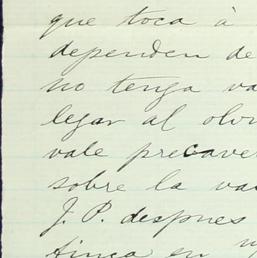 que toca à
dependen de
no tenga va
legar al olvi
vale precaver
sobre la va
J. P. despues
finca en